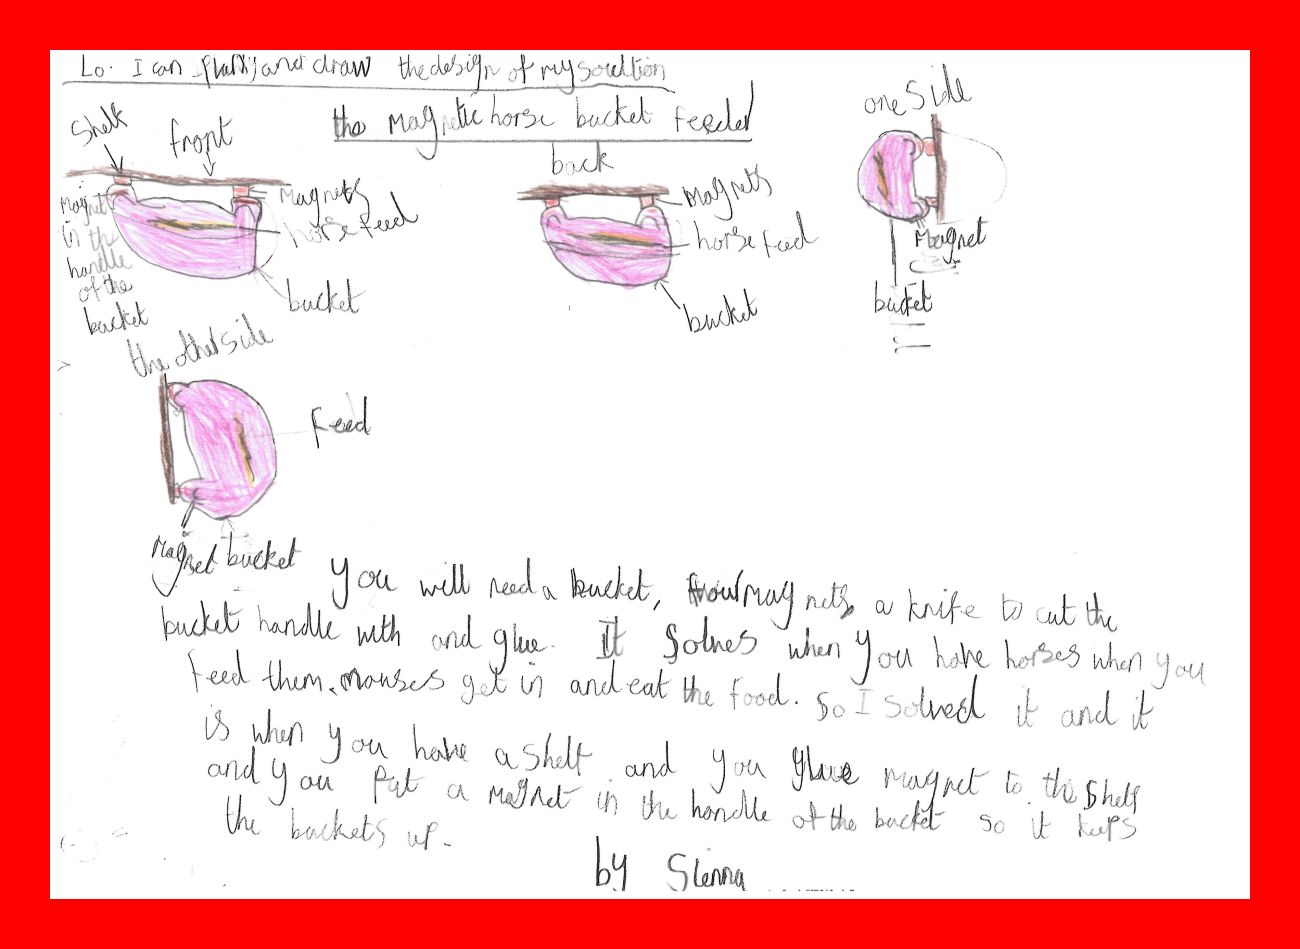 Lo. I can plan and draw the design of my soulution
the magnetic horse bucket feeder
Shelf
front
Magnets
horse feed
bucket
Magnet
in the
handle
of the
bucket
back
Magnets
horse feed
bucket
one Side
Magnet
bucket
the other side
Feed
Magnet
bucket
You will need a bucket, four magnets, a knife to cut the
bucket handle with and glue. It Solves when you have horses when you
Feed them. mouses get in and eat the food. So I solved it and it
is when you have a shelf and you glue magnet to the Shelf
and you put a magnet in the handle of the bucket so it keeps
the buckets up.
by Sienna